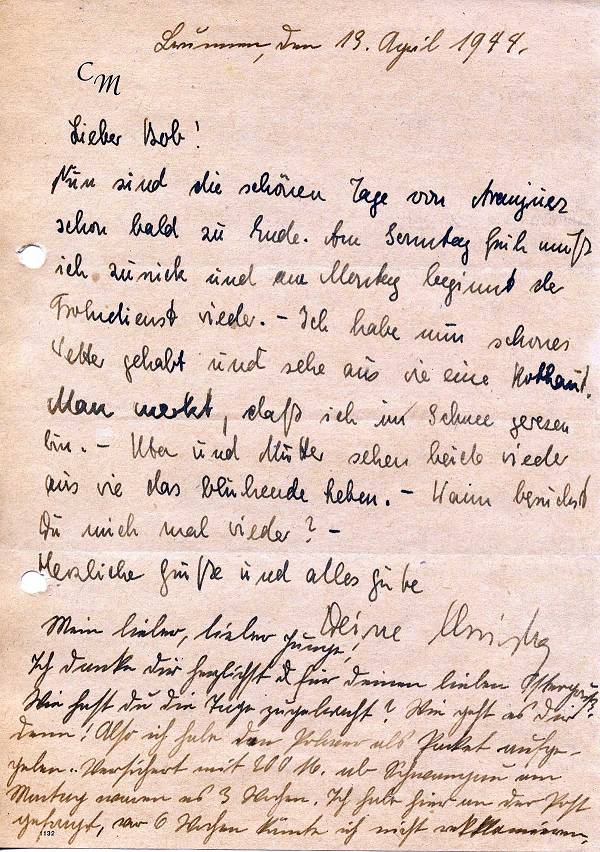 Brunnen, den 13. April 1944.
CM
Lieber Bob!
Nun sind die schönen Tage von Aranjuez
schon bald zu Ende. Am Sonntag früh muß
ich zurück und am Montag beginnt der
Frohndienst wieder. – Ich habe nun schönes
Wetter gehabt und sehe aus wie eine Rothaut.
Man merkt, daß ich im Schnee gewesen
bin. – und Mutter sehen beide wieder
aus wie das blühende Leben. – Wann besuchst
Du mich mal wieder? –
Herzliche Grüße und alles Gute
Deine
Mein lieber, lieber Junge!
Ich danke dir herzlichst für deinen lieben Ostergruß.
Wie hast du die Tage zugebracht? Wie geht es dir
denn! Also ich habe den als Packet aufge-
geben. Versichert mit 200 M. ab Schwangau am
Montag waren es 3 Wochen. Ich habe hier an der Post
gefragt, vor 6 Wochen könnte ich nicht reklamieren,
1132